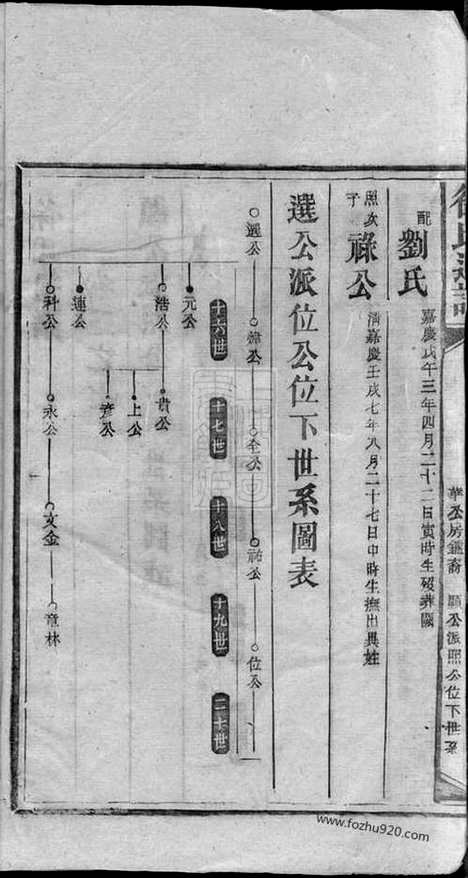 華公房鑑裔 顯公派照公位下世系
配 劉氏 嘉慶戊午三年四月二十二日寅時生歿葬闕
照次子 祿公 清嘉慶壬戌七年八月二十七日申時生撫出異姓
選公派位公位下世系圖表
選公 公 全公 祐公 位公
十六世 十七世 十八世 十九世 二十世
元公
浩公 貴公
上公
彥公
連公
科公 永公 文金 章林
www.fozhu920.com